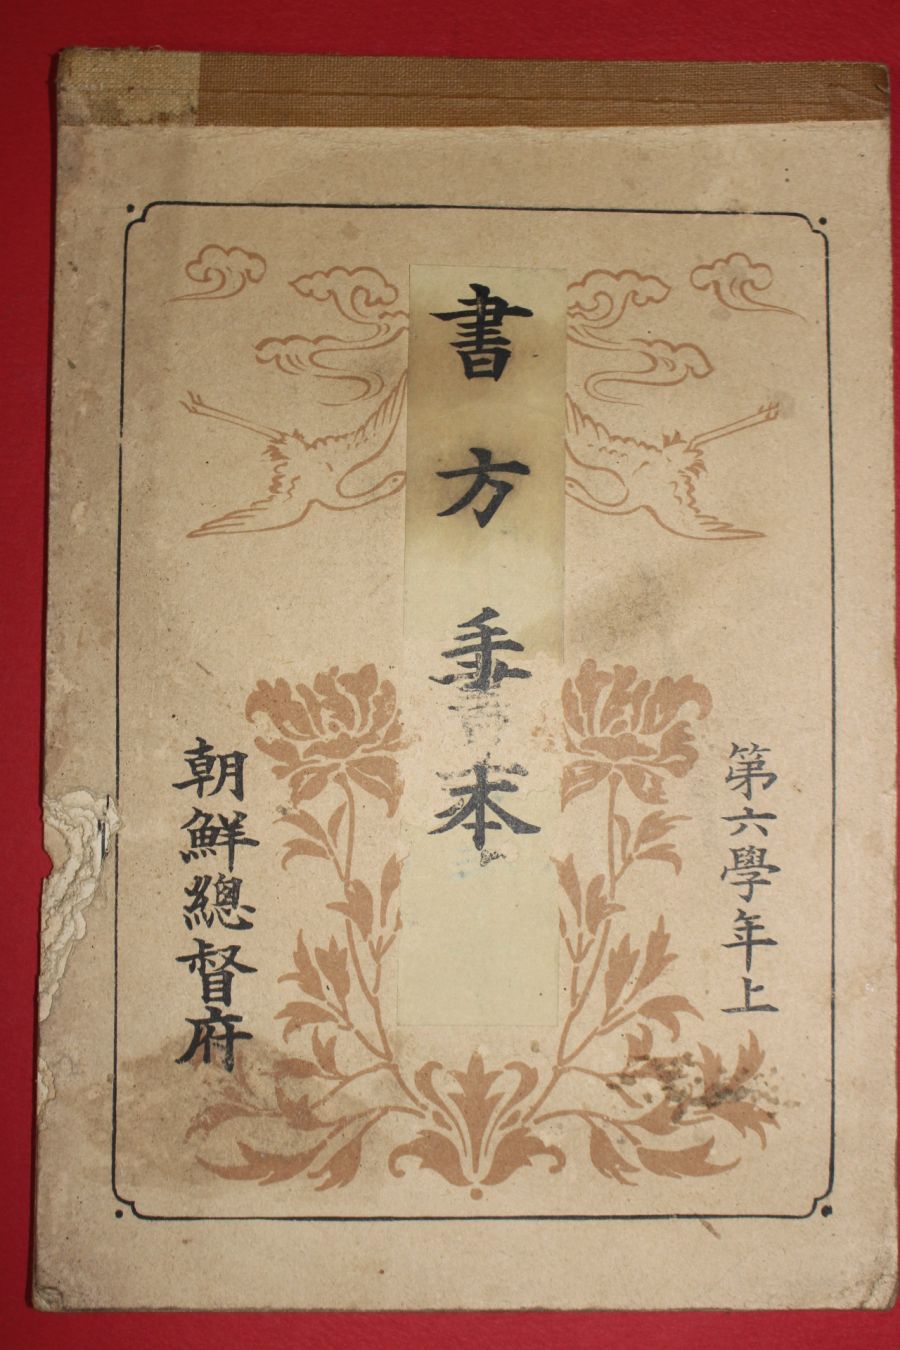 第六學年上
書方手本
朝鮮總督府